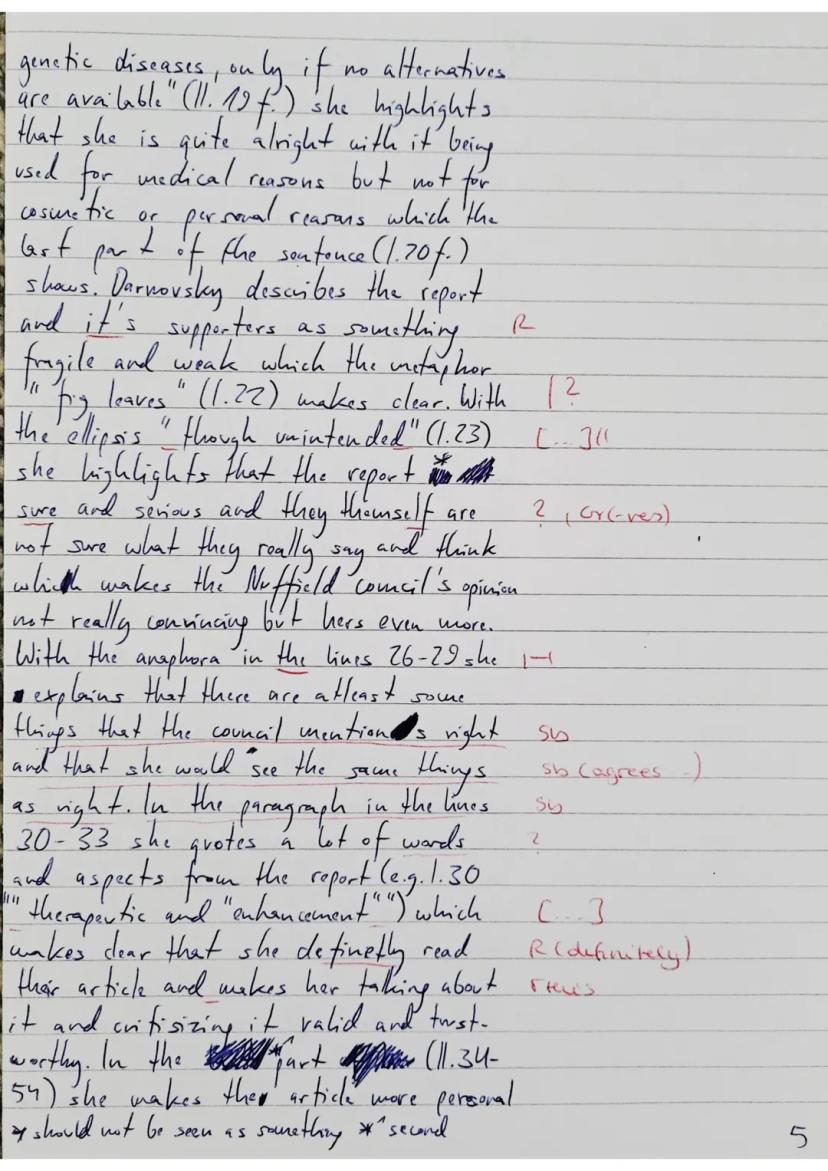 genetic diseases, only if no alternatives
are available" (ll. 19 f.) she highlights
that she is quite alright with it being
used for medical reasons but not for
cosmetic or personal reasons which the
last part of the sentence (l. 20 f.)
shows. Darnovsky describes the report
and it's supporters as something R
fragile and weak which the metaphor
"fig leaves" (l. 22) makes clear. With ?
the ellipsis "though unintended" (l. 23) [...]"
she highlights that the report *
sure and serious and they themself are ? , Gr(-ves)
not sure what they really say and think
which makes the Nuffield Council's opinion
not really convincing but hers even more.
With the anaphora in the lines 26-29 she H
explains that there are atleast some
things that the council mentions right Sb
and that she would see the same things Sb (agrees ..)
as right. In the paragraph in the lines Sb
30-33 she quotes a lot of words ?
and aspects from the report (e.g. l. 30
""therapeutic and "enhancement"") which [...]
makes clear that she definetly read R (definitely)
their article and makes her talking about
it and critisizing it valid and trust-
worthy. In the *² part (ll. 34-
54) she makes the article more personal
* should not be seen as something *² second
5